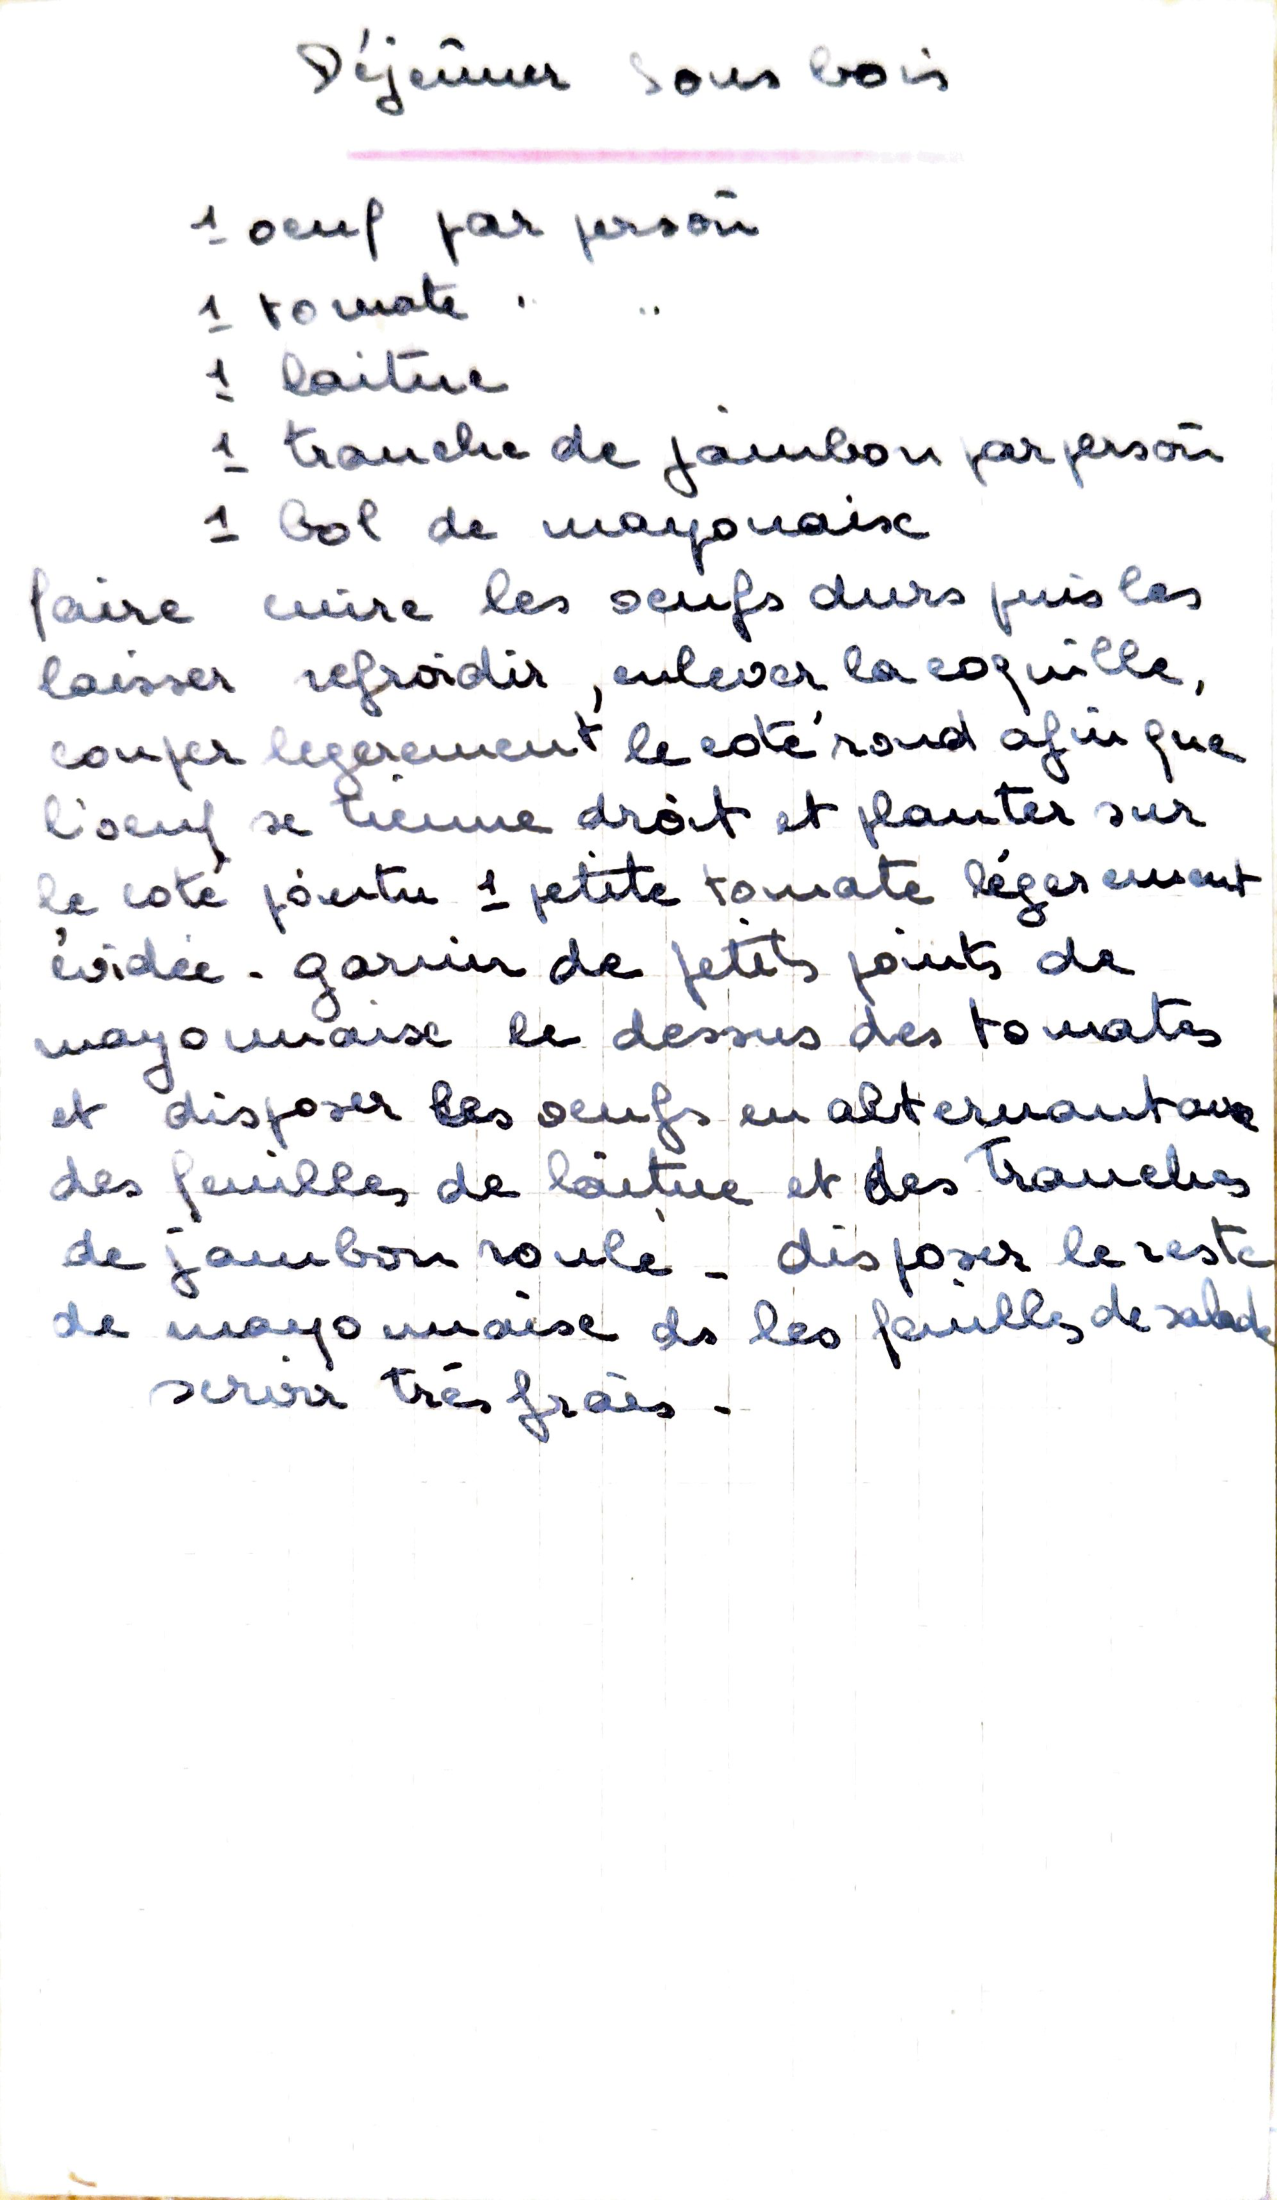 Déjeûner sous bois
1 oeuf par person̄
1 tomate " "
1 laitue
1 tranche de jambon par person̄
1 bol de mayonaise
faire cuire les oeufs durs puis les
laisser refroidir, enlever la coquille,
couper legerement le coté rond afin que
l'oeuf se tienne droit et planter sur
le coté pointu 1 petite tomate légerement
évidée - garnir de petits points de
mayonnaise le dessus des tomates
et disposer les oeufs en alternant avec
des feuilles de laitue et des tranches
de jambon roulé - disposer le reste
de mayonnaise ds les feuilles de salade
servir trés frais -